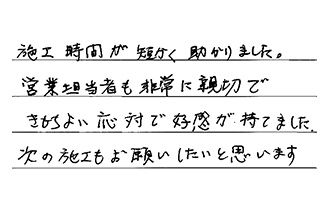 施工時間が短かく助かりました。
営業担当者も非常に親切で
きもちよい応対で好感が持てました.
次の施工もお願いしたいと思います